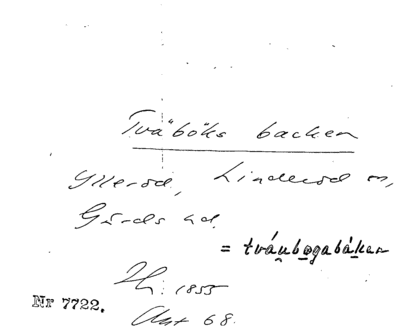 Tvåböks backen
Yllerod, Linderod sn,
Gärds hd.
= tváu̯bo̯gabáken
1855
Nr 7722.
Akt 68.